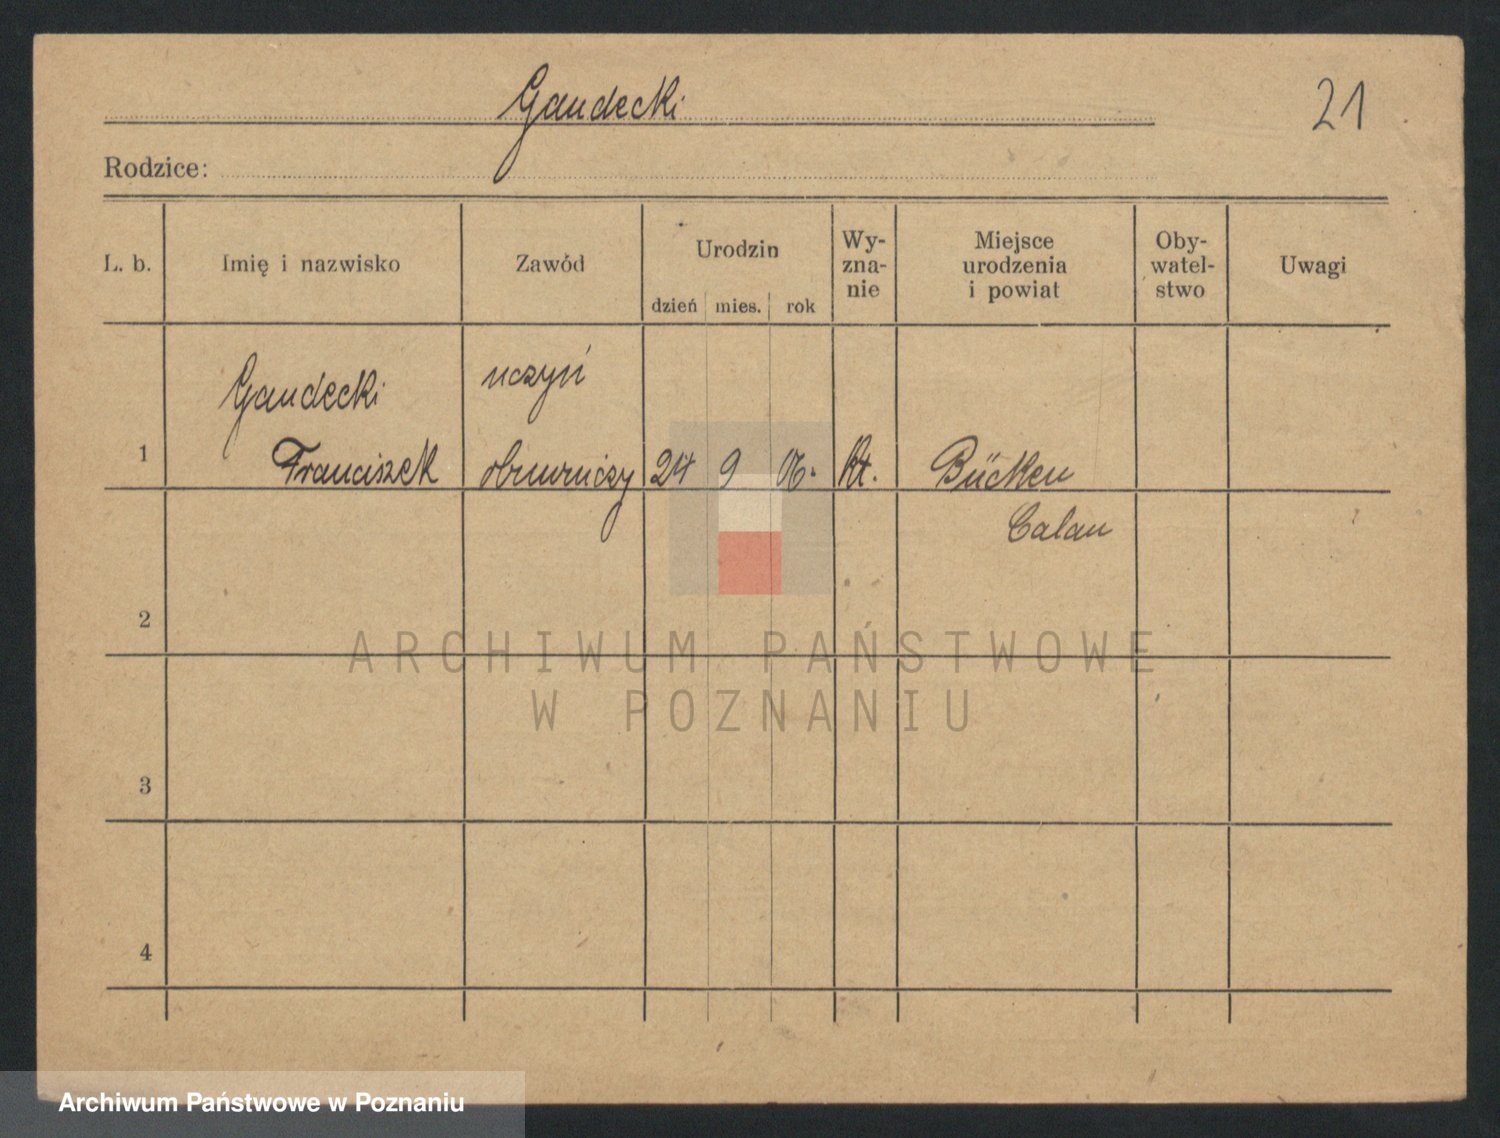 Gandecki
21
Rodzice:
L. b.
Imię i nazwisko
Zawód
Urodzin
dzień mies. rok
Wy-
zna-
nie
Miejsce
urodzenia
i powiat
Oby-
watel-
stwo
Uwagi
Gandecki uczyń
1 Franciszek obuwniczy 24 9 06. kt. Bücken
Calau
2
ARCHIWUM PAŃSTWOWE
W POZNANIU
3
4
Archiwum Państwowe w Poznaniu